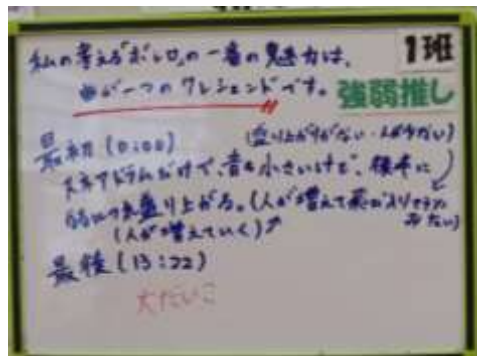 私の考える「ボレロ」の一番の魅力は、
1班
が一つのクレシェンドです。
強弱推し
最初(0:00)
(盛り上がりがない・人が少ない)
スネアドラムだけで、音も小さいけど、後半に
つれ盛り上がる。(人が増えて
みたい)
(人が増えていく)
最後(13:22)
大だいこ